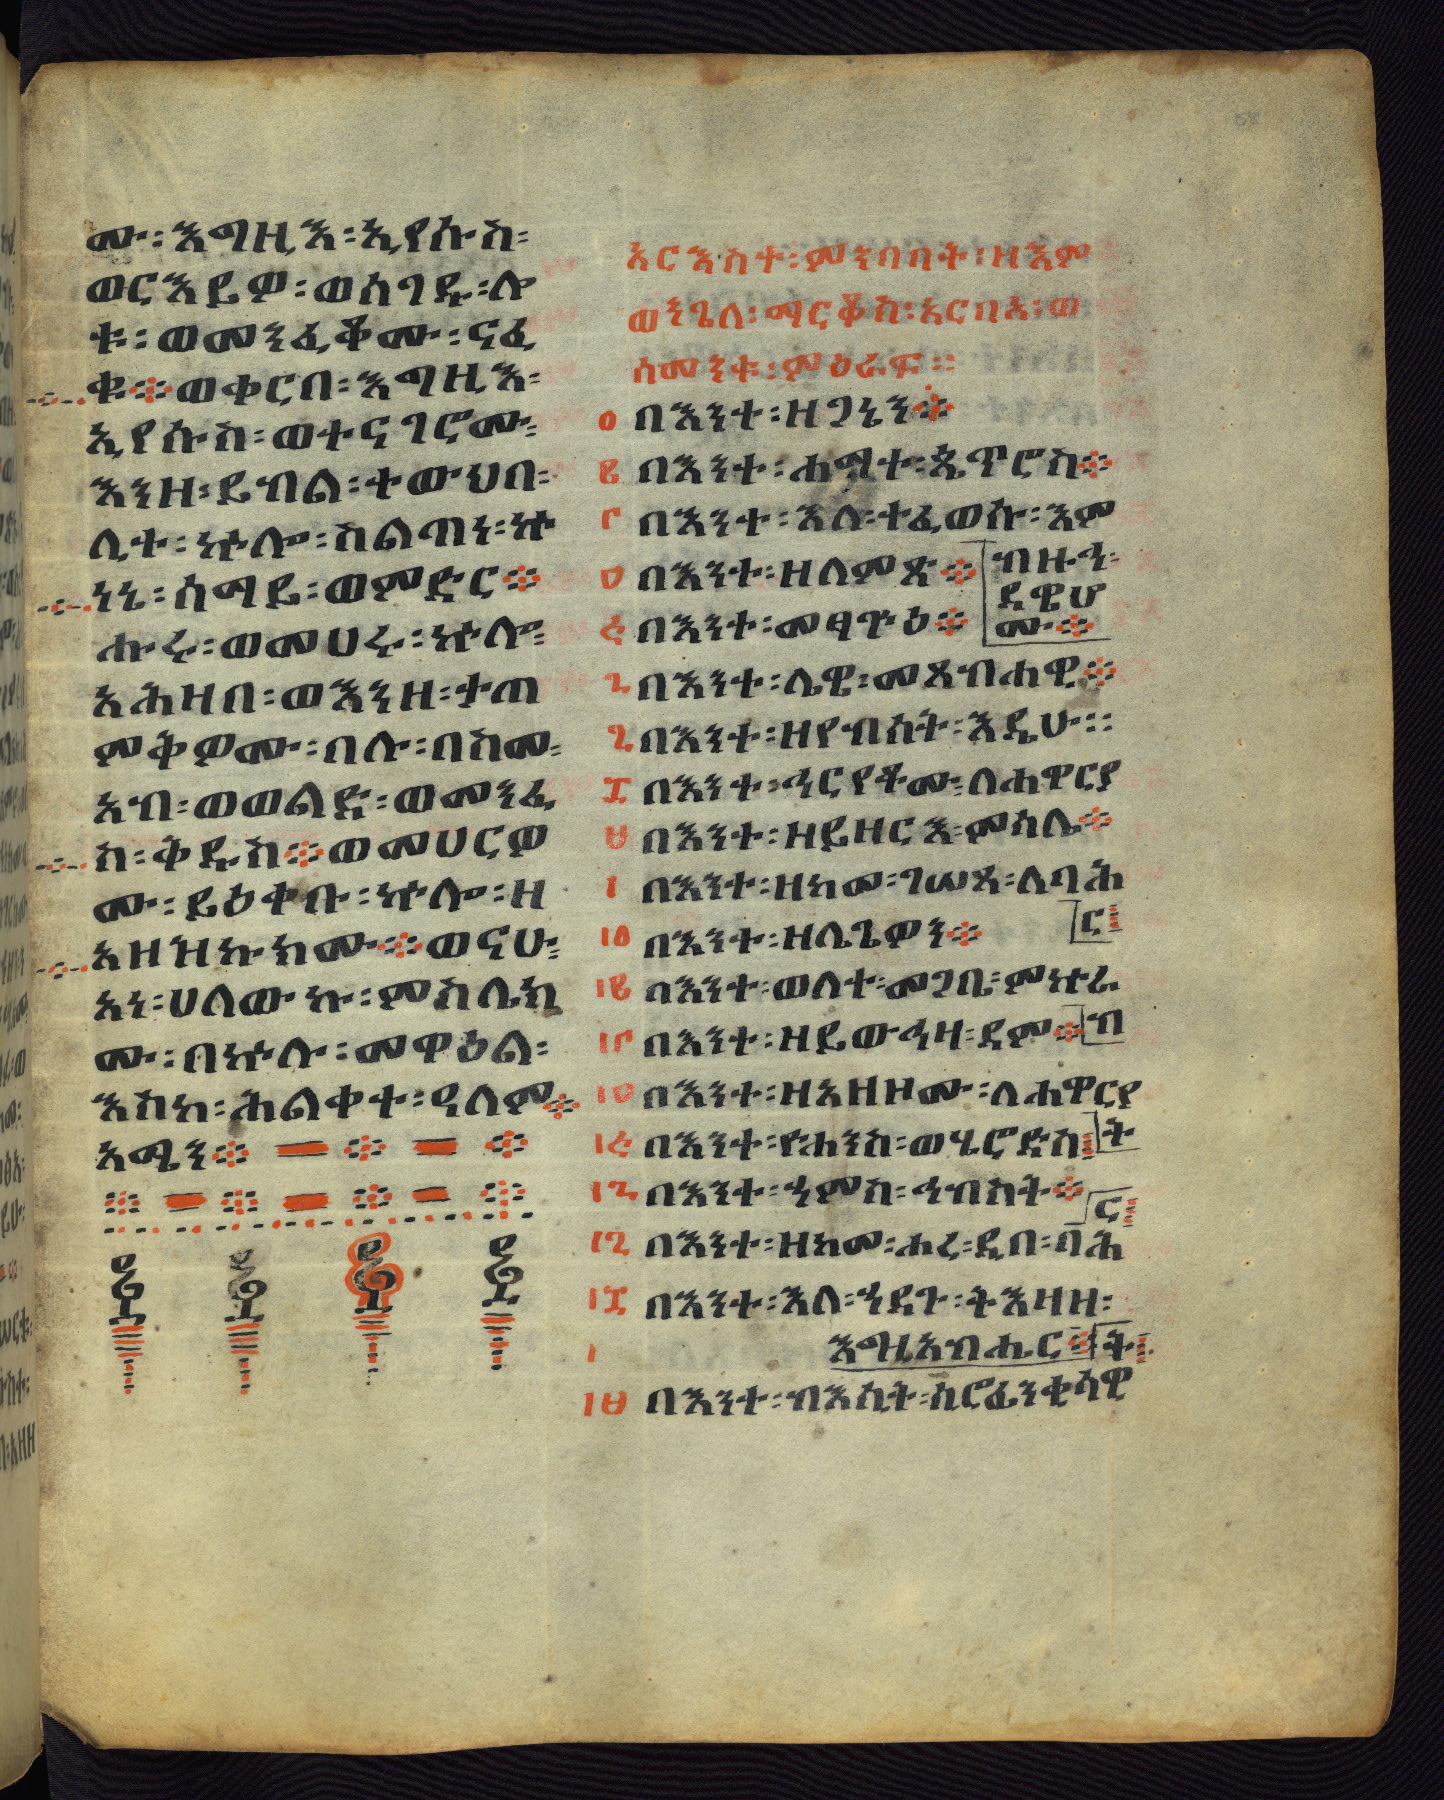 ሙ፡ እግዚእ፡ ኢየሱስ፡
ወርእይዎ፡ ወሰገዱ፡ ሎ
ቱ፡ ወመንፈቆሙ፡ ናፈ
ቁ፨ ወቀርበ፡ እግዚእ፡
ኢየሱስ፡ ወተናገሮሙ፡
እንዘ፡ ይብል፡ ተውህበ፡
ሊተ፡ ኵሎ፡ ስልጣነ፡ ኵ
ነኔ፡ ሰማይ፡ ወምድር፨
ሑሩ፡ ወመሀሩ፡ ኵሎ፡
አሕዛበ፡ ወእንዘ፡ ታጠ
ምቅዎሙ፡ በሉ፡ በስመ፡
አብ፡ ወወልድ፡ ወመንፈ
ስ፡ ቅዱስ፨ ወመሀርዎ
ሙ፡ ይዕቀቡ፡ ኵሎ፡ ዘ
አዘዝኩክሙ፨ ወናሁ፡
አነ፡ ሀለውኩ፡ ምስሌክ
ሙ፡ በኵሉ፡ መዋዕል፡
እስከ፡ ሕልቀተ፡ ዓለም፨
አሜን፨
አርእስተ፡ ምንባባት፡ ዘእም
ወንጌለ፡ ማርቆስ፡ አርበዓ፡ ወ
ሰመንቱ፡ ምዕራፍ፡፡
፩ በእንተ፡ ዘጋኔን፨
፪ በእንተ፡ ሐማተ፡ ጴጥሮስ፨
፫ በእንተ፡ እለ፡ ተፈወሱ፡ እም
ብዙኅ፡
ደዌሆ
ሙ፨
፬ በእንተ፡ ዘለምጽ፨
፭ በእንተ፡ መፃጕዕ፨
፮ በእንተ፡ ሌዊ፡ መጸብሐዊ፨
፯ በእንተ፡ ዘየብሰት፡ እዴሁ፡፡
፰ በእንተ፡ ኅርየቶሙ፡ ለሐዋርያ
፱ በእንተ፡ ዘይዘርእ፡ ምሳሌ፨
፲ በእንተ፡ ዘከመ፡ ገሠጸ፡ ለባሕ
ር፡
፲፩ በእንተ፡ ዘሌጌዎን፨
፲፪ በእንተ፡ ወለተ፡ መጋቤ፡ ምኵራ
ብ
፲፫ በእንተ፡ ዘይውኅዛ፡ ደም፨
፲፬ በእንተ፡ ዘአዘዞሙ፡ ለሐዋርያ
ት
፲፭ በእንተ፡ ዮሐንስ፡ ወሄሮድስ፡
፲፮ በእንተ፡ ኅምስ፡ ኅብስት፨
፲፯ በእንተ፡ ዘከመ፡ ሖረ፡ ዲበ፡ ባሕ
ር፡
፲፰ በእንተ፡ እለ፡ ኀደጉ፡ ትእዛዘ፡
እግዚአብሔር፨ ት፡
፲፱ በእንተ፡ ብእሲት፡ ሲሮፊንቂሳዊ